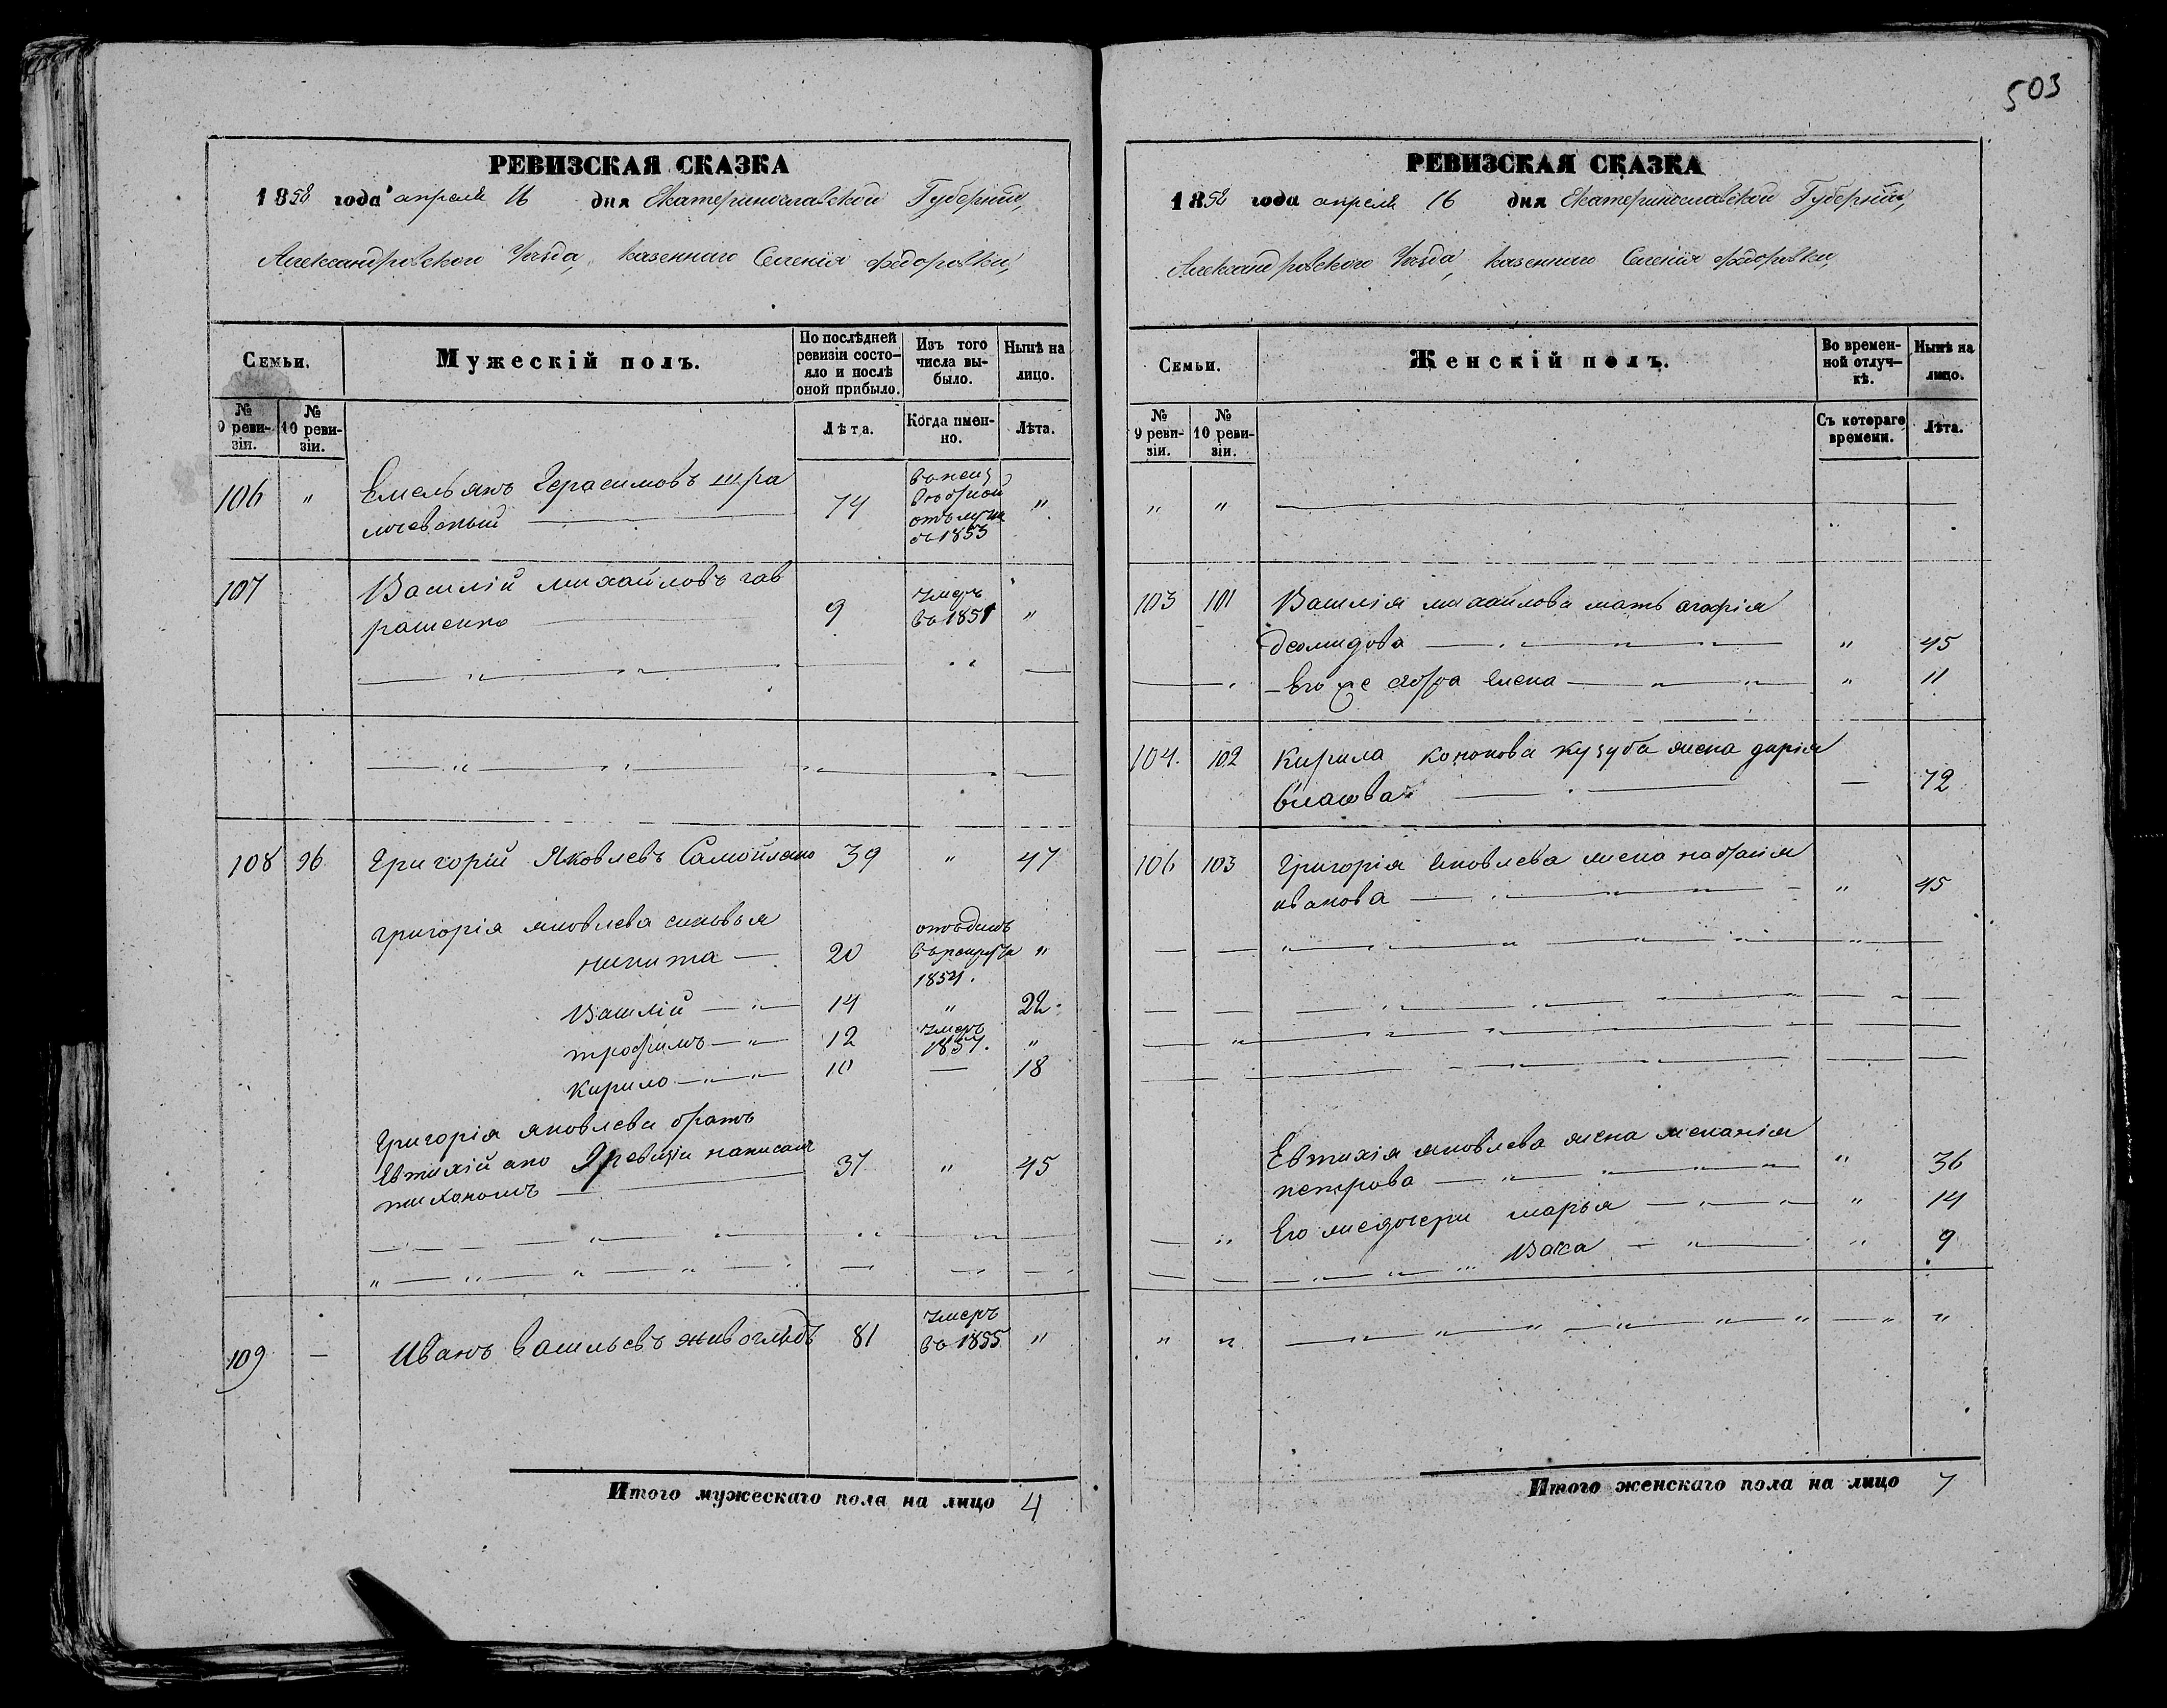 503
РЕВИЗСКАЯ СКАЗКА
1858 года апреля 16 дня Екатеринославской Губернии,
Александровского Уезда, казенного Селения Федоровки,
Семьи.
Мужескій полъ.
По послѣдней ревизіи состо-
яло и послѣ
оной прибыло.
Изъ того
числа вы-
было.
Нынѣ на
лицо.
№
9 реви-
зіи.
№
10 реви-
зіи.
Лѣта.
Когда имен-
но.
Лѣта.
106 " Емельянъ Герасимовъ 74 "
отлучке
съ 1853
107 Василій михайловъ гав
ращенко 9 умеръ
въ 1851 "
108 96 Григорій Яковлевъ Самойленко 39 " 47
григорія яковлева сыновья
никита 20 1854. "
Василій 14 " 22
трофимъ 12 умеръ
1857. "
Кирило 10 — 18
Григорія яковлева братъ
Евтихій а по 9 ревизіи написанъ
тихономъ 37 " 45
109 — Иванъ Васильевъ живоглядъ 81 умеръ
въ 1855 "
Итого мужескаго пола на лицо 4
РЕВИЗСКАЯ СКАЗКА
1858 года апреля 16 дня Екатеринославской Губернии,
Александровского Уезда, казенного Селения Федоровки,
Семьи.
Женскій полъ.
Во времен-
ной отлуч-
кѣ.
Нынѣ на
лицо.
№
9 реви-
зіи.
№
10 реви-
зіи.
Съ котораго
времени.
Лѣта.
103 101 Василія михайлова мать агафія
деомидова " 45
Его же сестра Елена " 11
104. 102 Кирила кононова кузуба жена дарія
власова — 72
106 103 Григорія яковлева жена настасія
иванова " 45
Евтихія яковлева жена меланія
петрова " 36
Его же дочери марья " 14
Васа " 9
Итого женскаго пола на лицо 7